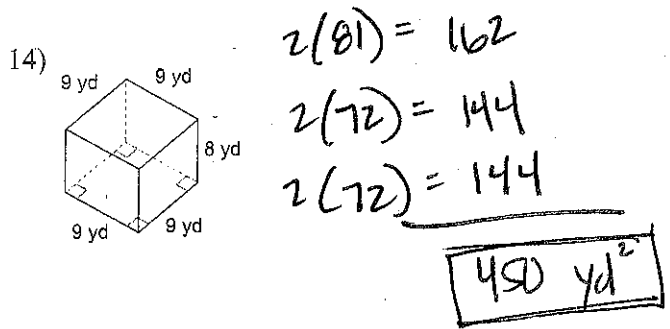 14)
9 yd 9 yd
8 yd
9 yd 9 yd
2(81) = 162
2(72) = 144
2(72) = 144
450 yd²